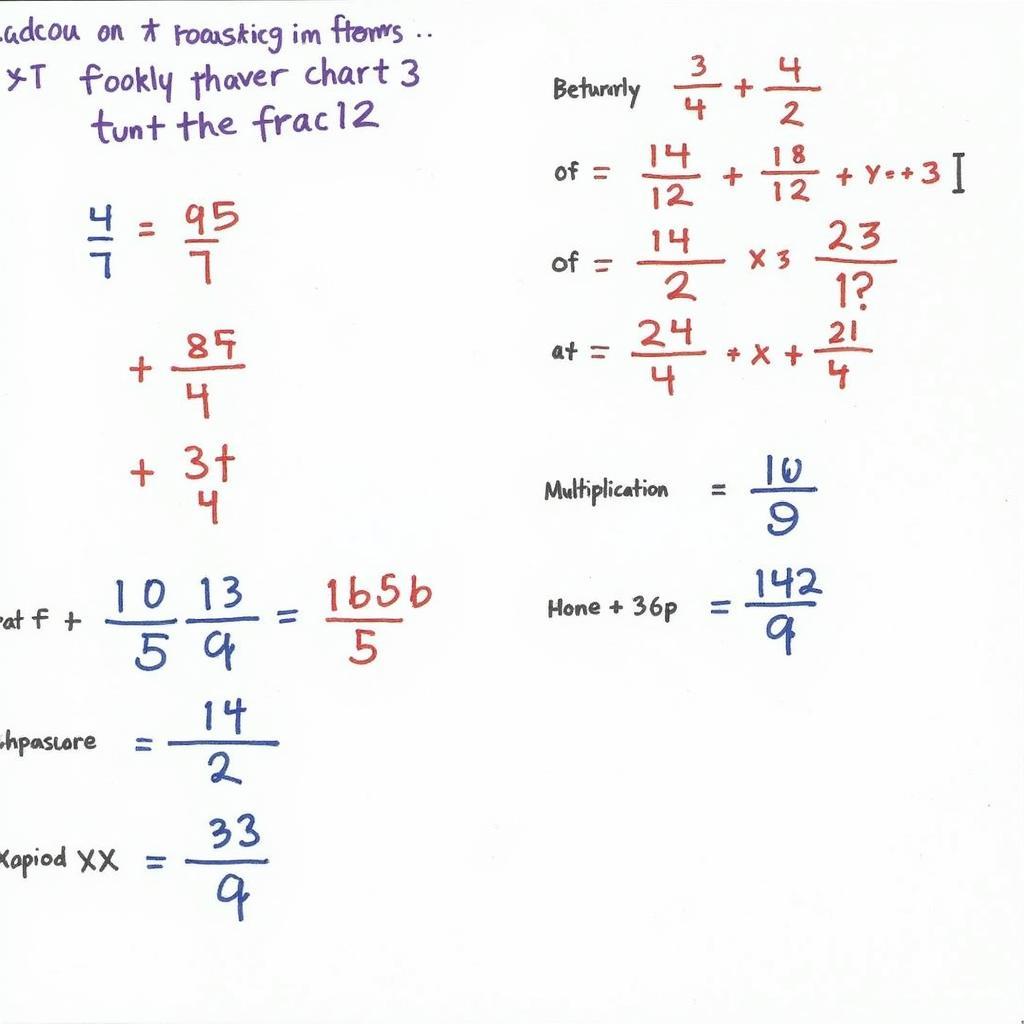 adcou on * roauskicg im ftoms ..
xT fookly thaver chart 3
tunt the frac12
4/7 = 95/7
+ 85/4
+ 3t
4
at f + 10/5 13/9 = 1b5b/5
hpasɩore = 14/2
Xapiod XX = 33/9
Beturnrly 3/4 + 4/2
of = 14/12 + 18/12 + Y=+3 I
of = 14/2 x 3 23/1?
at = 24/4 + x + 21/4
Multiplication = 10/9
Hone + 36p = 142/9